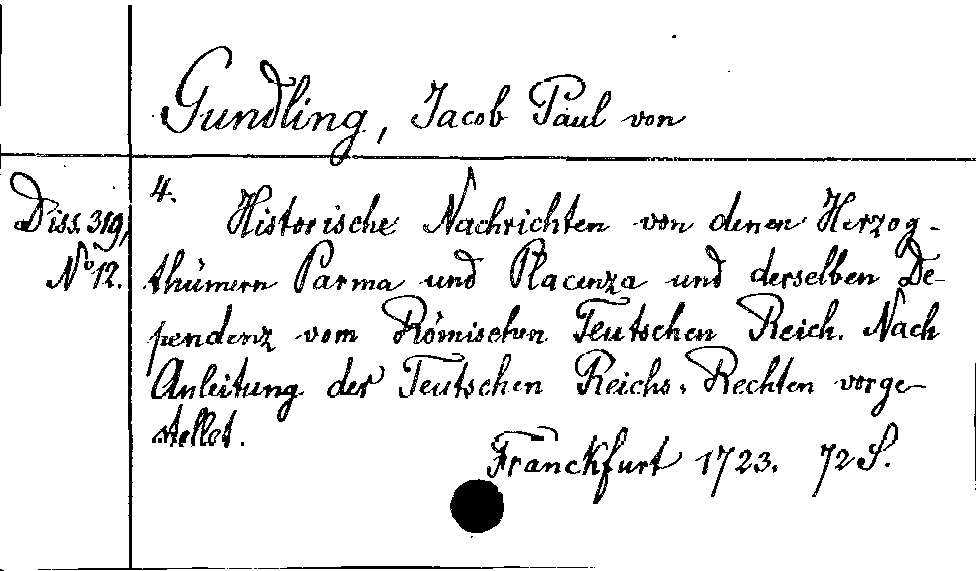 Gundling, Jacob Paul von
Diss. 319,
No 12.
4.
Historische Nachrichten von denen Herzog-
thümern Parma und Placenza und derselben De-
pendenz vom Römischen Teutschen Reich. Nach
Anleitung der Teutschen Reichs-Rechten vorge-
stellet.
Franckfurt 1723. 72 S.